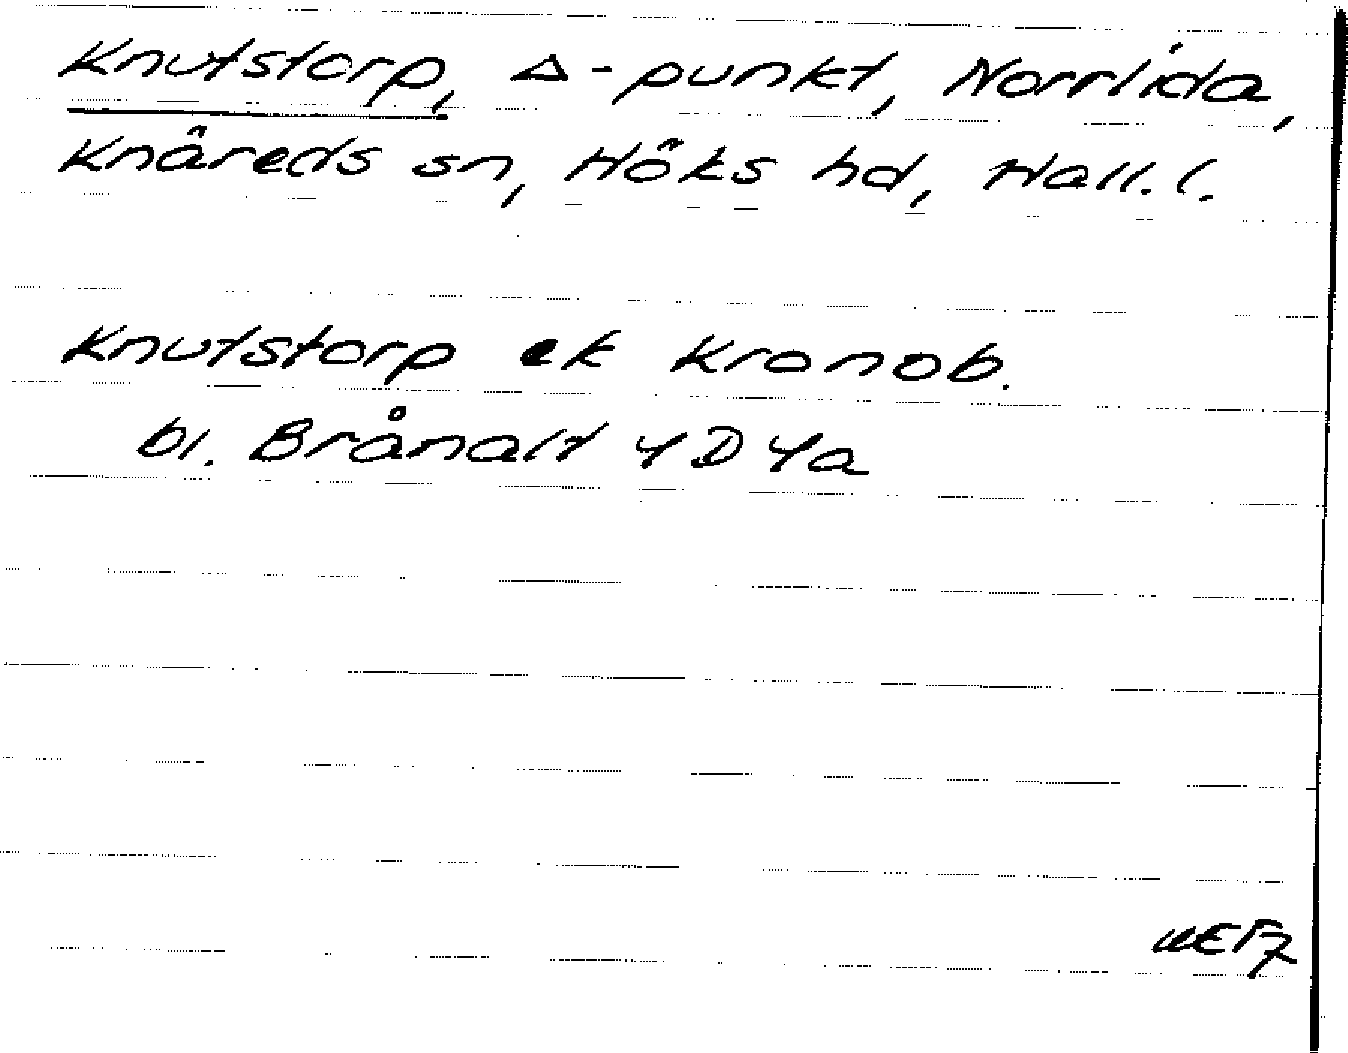 Knutstorp, Δ-punkt, Norrlida,
Knäreds sn, Höks hd, Hall. l.
Knutstorp ek Kronob.
bl. Brånalt 4D4a